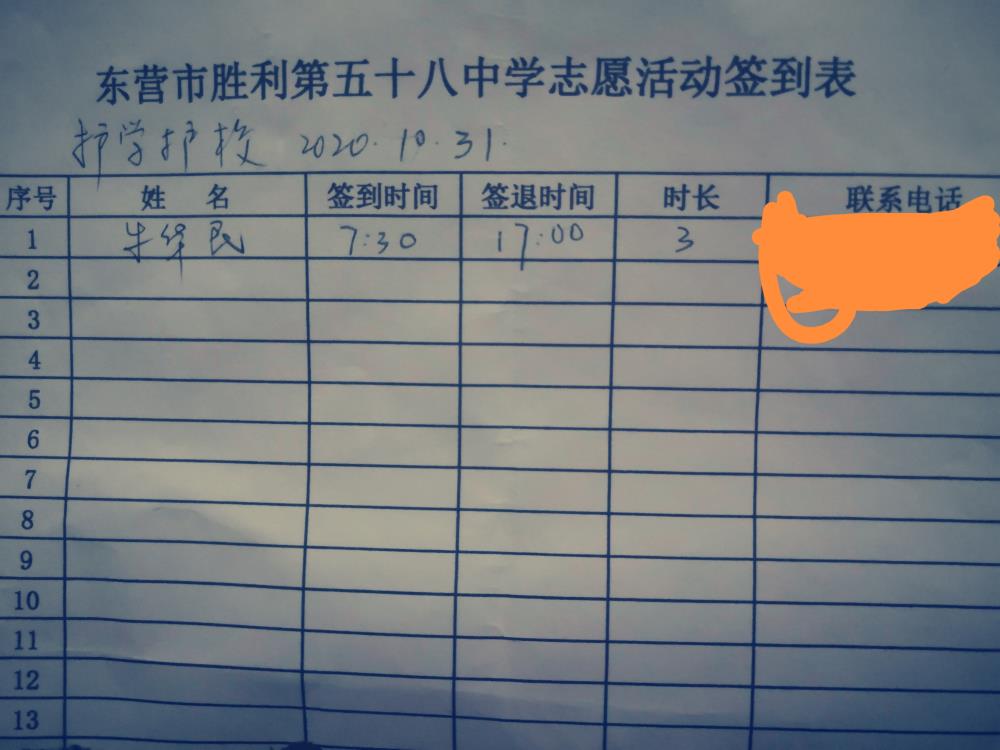 东营市胜利第五十八中学志愿活动签到表
护学护校 2020.10.31.
序号 姓 名 签到时间 签退时间 时长 联系电话
1 牛华民 7:30 17:00 3
2
3
4
5
6
7
8
9
10
11
12
13